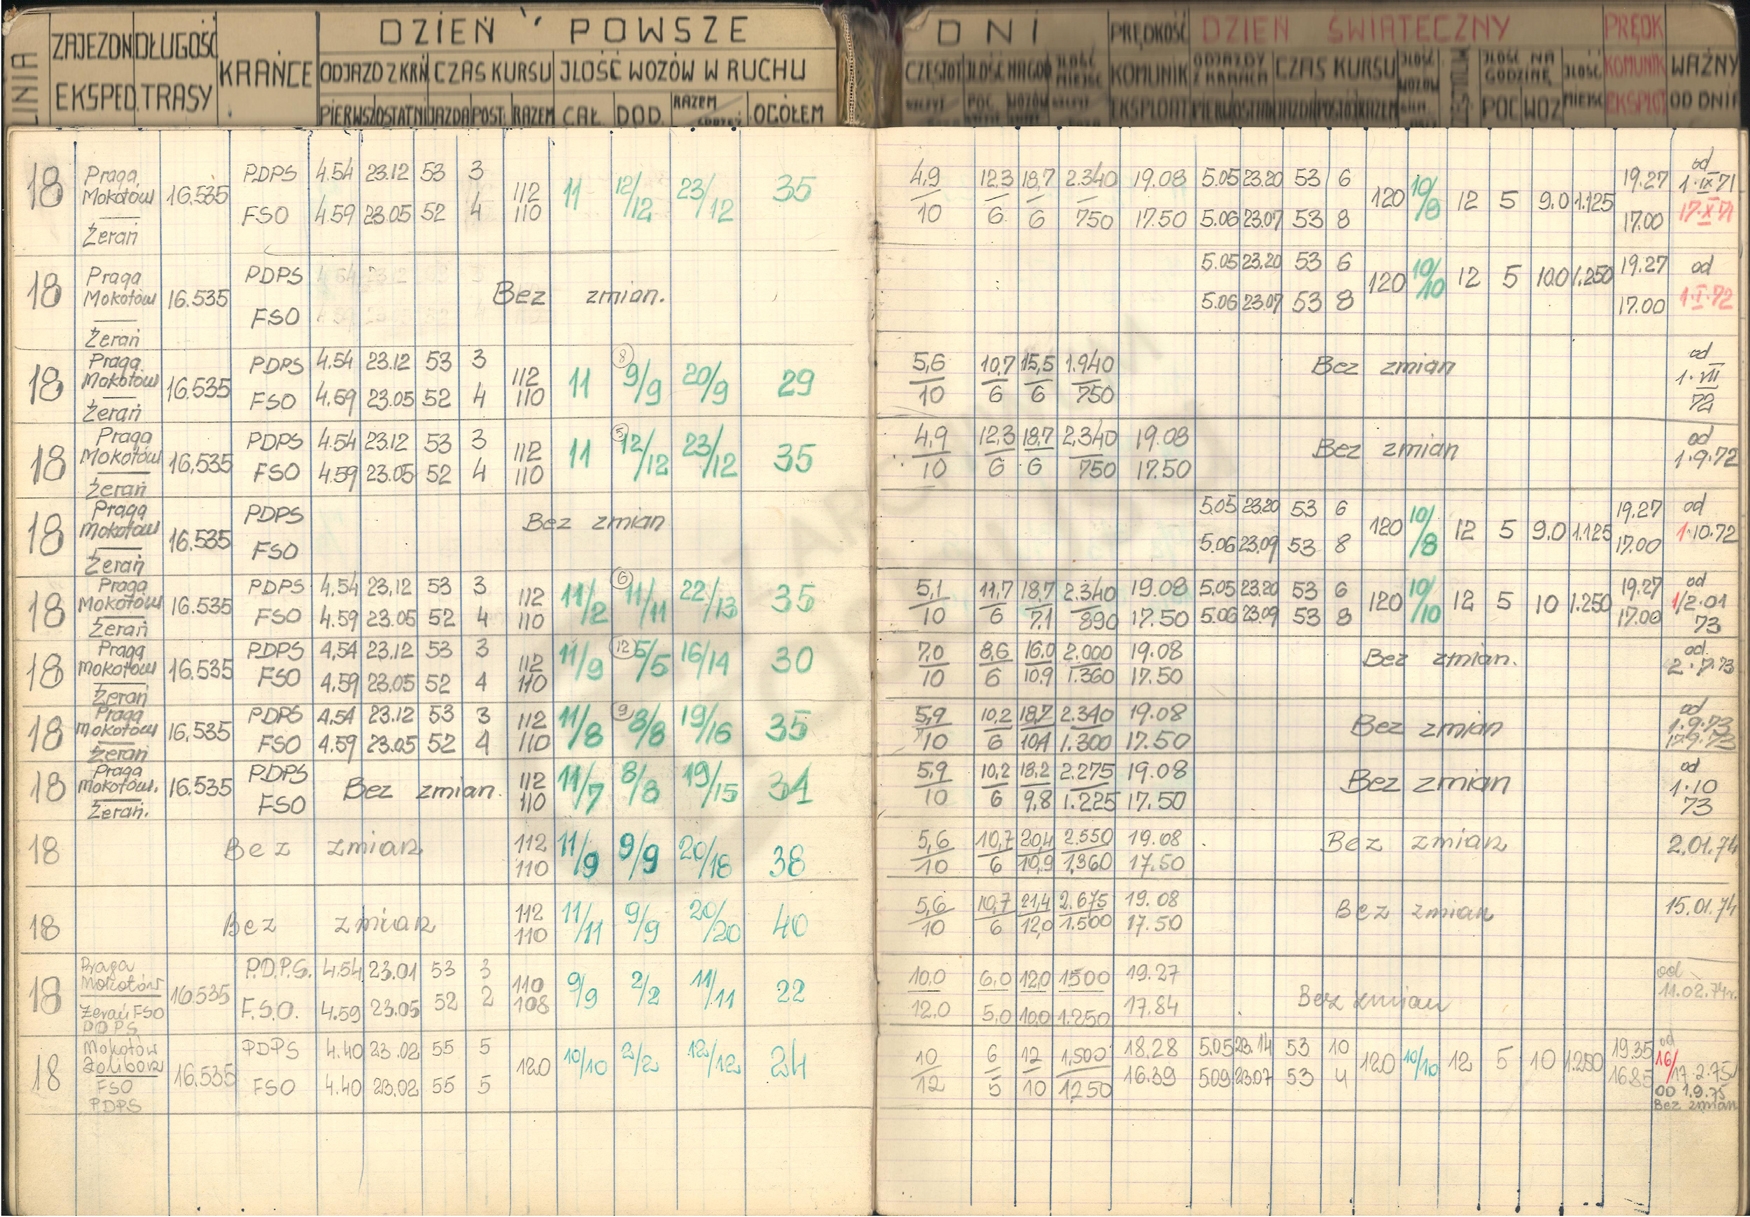 LINIA ZAJEZDN. EKSPED. DŁUGOŚĆ TRASY KRAŃCE DZIEŃ POWSZE DNI PRĘDKOŚĆ KOMUNIK EKSPLOAT DZIEŃ ŚWIATECZNY PRĘDK KOMUNIK EKSPLOT WAŻNY OD DNIA
ODJAZD Z KRŃ CZAS KURSU JLOŚĆ WOZÓW W RUCHU CZAS KURSU JLOŚĆ NA GODZINĘ
PIERWSZ OSTATNI JAZDA POST. RAZEM CAŁ. DOD. RAZEM OGÓŁEM POC WOZ
18 Praga Mokotów Żerań 16.535 PDPS 4.54 23.12 53 3 112 11 12/12 23/12 35 4,9 12,3 18,7 2.340 19.08 5.05 23.20 53 6 120 10/8 12 5 9.0 1.125 19.27 od 1·IX 71
FSO 4.59 23.05 52 4 110 10 6 6 750 17.50 5.06 23.07 53 8 17.00 17·X 71
18 Praga Mokotów Żerań 16.535 PDPS Bez zmian. 5.05 23.20 53 6 120 10/10 12 5 10.0 1.250 19.27 od
FSO 5.06 23.07 53 8 17.00 1·I·72
18 Praga Mokotów Żerań 16.535 PDPS 4.54 23.12 53 3 112 11 8 9/9 20/9 29 5,6 10,7 15,5 1.940 Bez zmian od 1·VII 72
FSO 4.59 23.05 52 4 110 10 6 6 750
18 Praga Mokotów Żerań 16,535 PDPS 4.54 23.12 53 3 112 11 5 12/12 23/12 35 4,9 12,3 18,7 2,340 19.08 Bez zmian od 1·9·72
FSO 4.59 23.05 52 4 110 10 6 6 750 17.50
18 Praga Mokotów Żerań 16.535 PDPS Bez zmian 5.05 23.20 53 6 120 10/8 12 5 9.0 1.125 19.27 od
FSO 5.06 23.09 53 8 17.00 1·10.72
18 Praga Mokotów Żerań 16.535 PDPS 4.54 23.12 53 3 112 11/2 6 11/11 22/13 35 5,1 11,7 18,7 2.340 19.08 5.05 23.20 53 6 120 10/10 12 5 10 1.250 19.27 od 1/2·01 73
FSO 4.59 23.05 52 4 110 10 6 7,1 890 17.50 5.06 23.09 53 8 17.00
18 Praga Mokotów Żerań 16.535 PDPS 4,54 23.12 53 3 112 11/9 12 5/5 16/14 30 7,0 8,6 16.0 2.000 19.08 Bez zmian. od 2·7·73
FSO 4.59 23.05 52 4 110 10 6 10,9 1.360 17.50
18 Praga Mokotów Żerań 16,535 PDPS 4.54 23.12 53 3 112 11/8 9 8/8 19/16 35 5,9 10,2 18,7 2.340 19.08 Bez zmian od 1.9.73
FSO 4.59 23.05 52 4 110 10 6 10,4 1.300 17.50
18 Praga Mokotów. Żerań. 16.535 PDPS Bez zmian. 112 11/7 8/8 19/15 34 5,9 10,2 18,2 2.275 19.08 Bez zmian od 1·10 73
FSO 110 10 6 9,8 1.225 17.50
18 Bez zmian 112 11/9 9/9 20/18 38 5,6 10,7 20,4 2.550 19.08 Bez zmian 2.01.74
110 10 6 10,9 1,360 17.50
18 Bez zmian 112 11/11 9/9 20/20 40 5,6 10,7 21,4 2.675 19.08 Bez zmian 15.01.74
110 10 6 12,0 1.500 17.50
18 Praga Mokotów Żerań FSO PDPS 16.535 P.D.P.S. 4.54 23.01 53 3 110 9/9 2/2 11/11 22 10,0 6,0 12,0 1500 19.27 Bez zmian od 11.02.74r.
F.S.O. 4.59 23.05 52 2 108 12.0 5,0 10,0 1.250 17.84
18 Mokotów Żoliborz FSO PDPS 16,535 PDPS 4.40 23.02 55 5 120 10/10 2/2 12/12 24 10 6 12 1,500 18.28 5.05 23.14 53 10 120 10/10 12 5 10 1.250 19.35 od 16/17.2.75
FSO 4.40 23.02 55 5 12 5 10 1,250 16.39 5.09 23.07 53 4 16.85 OD 1.9.75 Bez zmian